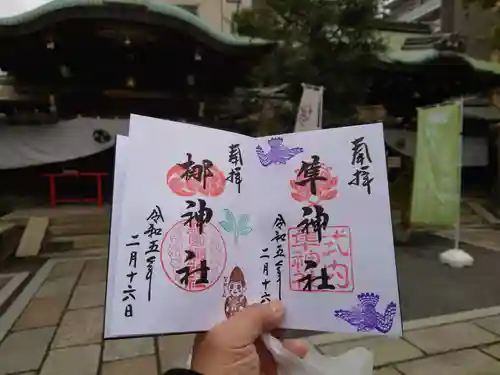 奉拝
隼神社
式内
隼神社
令和五年
二月十六日
奉拝
梛神社
令和五年
二月十六日